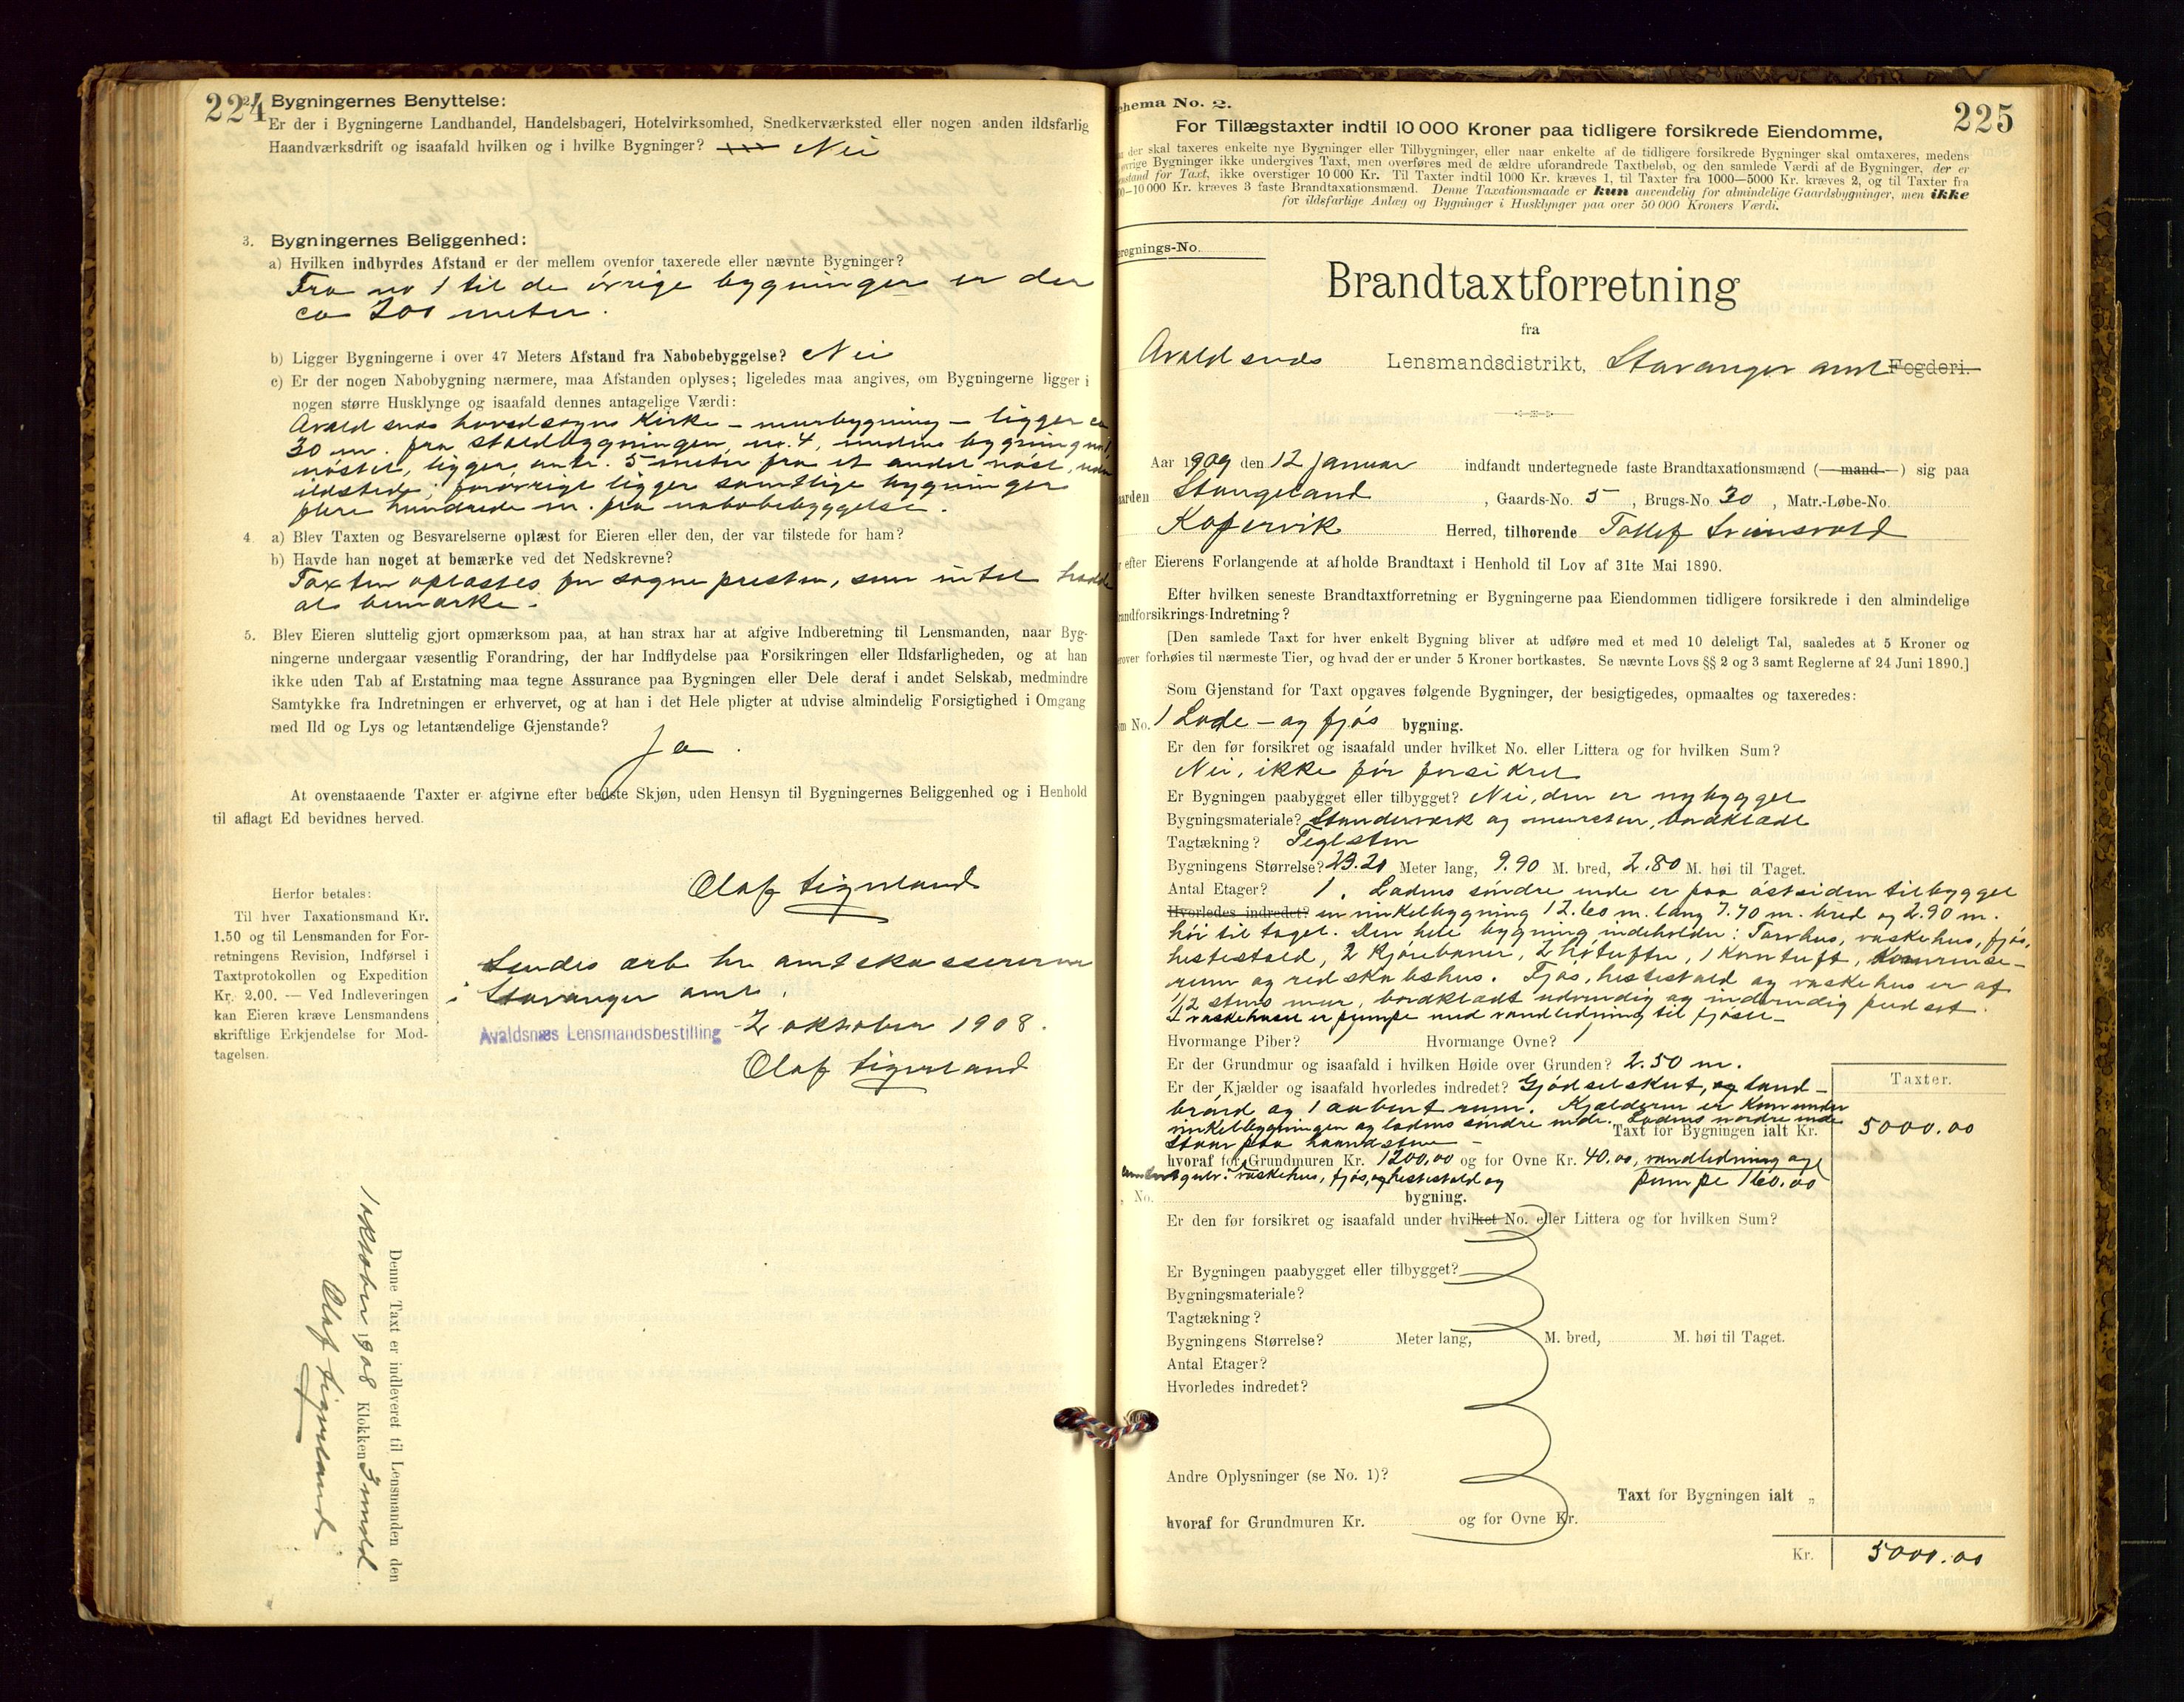 224
2. Bygningernes Benyttelse:
Er der i Bygningerne Landhandel, Handelsbageri, Hotelvirksomhed, Snedkerværksted eller nogen anden ildsfarlig
Haandværksdrift og isaafald hvilken og i hvilke Bygninger? Nei
3. Bygningernes Beliggenhed:
a) Hvilken indbyrdes Afstand er der mellem ovenfor taxerede eller nævnte Bygninger?
Fra no 1 til de øvrige bygninger er der
ca 300 meter.
b) Ligger Bygningerne i over 47 Meters Afstand fra Nabobebyggelse? Nei
c) Er der nogen Nabobygning nærmere, maa Afstanden oplyses; ligeledes maa angives, om Bygningerne ligger i
nogen større Husklynge og isaafald dennes antagelige Værdi:
Avaldsnes hovedsogns Kirke – murbygning – ligger ca
30 m. fra staldbygningen, no. 4, medens bygning no 1,
nøstet, ligger omtr. 5 meter fra et andet nøst, uden
ildsted; forøvrigt ligger samtlige bygninger
flere hundrede m. fra nabobebyggelse.
4. a) Blev Taxten og Besvarelserne oplæst for Eieren eller den, der var tilstede for ham?
b) Havde han noget at bemærke ved det Nedskrevne?
Taxten oplæstes for sognepresten, som intet havde
at bemærke.
5. Blev Eieren sluttelig gjort opmærksom paa, at han strax har at afgive Indberetning til Lensmanden, naar Byg-
ningerne undergaar væsentlig Forandring, der har Indflydelse paa Forsikringen eller Ildsfarligheden, og at han
ikke uden Tab af Erstatning maa tegne Assurance paa Bygningen eller Dele deraf i andet Selskab, medmindre
Samtykke fra Indretningen er erhvervet, og at han i det Hele pligter at udvise almindelig Forsigtighed i Omgang
med Ild og Lys og letantændelige Gjenstande?
Ja.
At ovenstaaende Taxter er afgivne efter bedste Skjøn, uden Hensyn til Bygningernes Beliggenhed og i Henhold
til aflagt Ed bevidnes herved.
Olaf
Herfor betales:
Til hver Taxationsmand Kr.
1.50 og til Lensmanden for For-
retningens Revision, Indførsel i
Taxtprotokollen og Expedition
Kr. 2.00. — Ved Indleveringen
kan Eieren kræve Lensmandens
skriftlige Erkjendelse for Mod-
tagelsen.
Sendes ærb hr amtskassereren
i Stavanger amt.
Avaldsnæs Lensmandsbestilling 2 oktober 1908.
Olaf
Denne Taxt er indleveret til Lensmanden den
1 oktober 1908 Klokken 3 midd.
Olaf
225
chema No. 2.
For Tillægstaxter indtil 10 000 Kroner paa tidligere forsikrede Eiendomme,
der skal taxeres enkelte nye Bygninger eller Tilbygninger, eller naar enkelte af de tidligere forsikrede Bygninger skal omtaxeres, medens
øvrige Bygninger ikke undergives Taxt, men overføres med de ældre uforandrede Taxtbeløb, og den samlede Værdi af de Bygninger, der er
nstand for Taxt, ikke overstiger 10 000 Kr. Til Taxter indtil 1000 Kr. kræves 1, til Taxter fra 1000—5000 Kr. kræves 2, og til Taxter fra
00—10 000 Kr. kræves 3 faste Brandtaxationsmænd. Denne Taxationsmaade er kun anvendelig for almindelige Gaardsbygninger, men ikke
for ildsfarlige Anlæg og Bygninger i Husklynger paa over 50 000 Kroners Værdi.
regnings-No.
Brandtaxtforretning
fra
Avaldsnes Lensmandsdistrikt, Stavanger amt Fogderi.
Aar 1909 den 12 januar indfandt undertegnede faste Brandtaxationsmænd (—mand—) sig paa
aarden Stangeland, Gaards-No. 5, Brugs-No. 30, Matr.-Løbe-No.
Kopervik Herred, tilhørende Tollef
efter Eierens Forlangende at afholde Brandtaxt i Henhold til Lov af 31te Mai 1890.
Efter hvilken seneste Brandtaxtforretning er Bygningerne paa Eiendommen tidligere forsikrede i den almindelige
randforsikrings-Indretning?
[Den samlede Taxt for hver enkelt Bygning bliver at udføre med et med 10 deleligt Tal, saaledes at 5 Kroner og
rover forhøies til nærmeste Tier, og hvad der er under 5 Kroner bortkastes. Se nævnte Lovs §§ 2 og 3 samt Reglerne af 24 Juni 1890.]
Som Gjenstand for Taxt opgaves følgende Bygninger, der besigtigedes, opmaaltes og taxeredes:
No. 1 Lade – og fjøs bygning.
Er den før forsikret og isaafald under hvilket No. eller Littera og for hvilken Sum?
Nei, ikke før forsikret
Er Bygningen paabygget eller tilbygget? Nei, den er nybygget
Bygningsmateriale? Standerværk og mursten, bordklædt
Tagtækning? Teglsten
Bygningens Størrelse? 23.20 Meter lang, 9.90 M. bred, 2.80 M. høi til Taget.
Antal Etager? 1. Ladens søndre ende er paa østsiden tilbygget
Hvorledes indredet? en vinkelbygning 12.60 m. lang 7.70 m. bred og 2.90 m.
høi til taget. Den hele bygning indeholder: Torvhus, vaskehus, fjøs,
hestestald, 2 kjørebaner, 2 høtufter, 1 korntuft,
rum og redskabshus. Fjøs, hestestald og vaskehus er af
1/2 stens mur, bordklædt udvendig og indvendig pudset.
I vaskehuset er pumpe med vandledning til fjøset
Hvormange Piber? Hvormange Ovne? 1
Er der Grundmur og isaafald i hvilken Høide over Grunden? 2.50 m.
Er der Kjælder og isaafald hvorledes indredet? Gjødselskut, og land-
brønd og 1 aabent rum. Kjælderen er kun under
vinkelbygningen og ladens søndre ende. Ladens nordre ende
staar paa haandstene
Taxter.
Taxt for Bygningen ialt Kr. 5000.00
hvoraf for Grundmuren Kr. 1200.00 og for Ovne Kr. 40.00, vandledning og
gulv i vaskehus, fjøs, og hestestald og pumpe 160.00
, No. bygning.
Er den før forsikret og isaafald under hvilket No. eller Littera og for hvilken Sum?
Er Bygningen paabygget eller tilbygget?
Bygningsmateriale?
Tagtækning?
Bygningens Størrelse? Meter lang, M. bred, M. høi til Taget.
Antal Etager?
Hvorledes indredet?
Andre Oplysninger (se No. 1)?
Taxt for Bygningen ialt „
hvoraf for Grundmuren Kr. og for Ovne Kr.
Kr. 5000.00